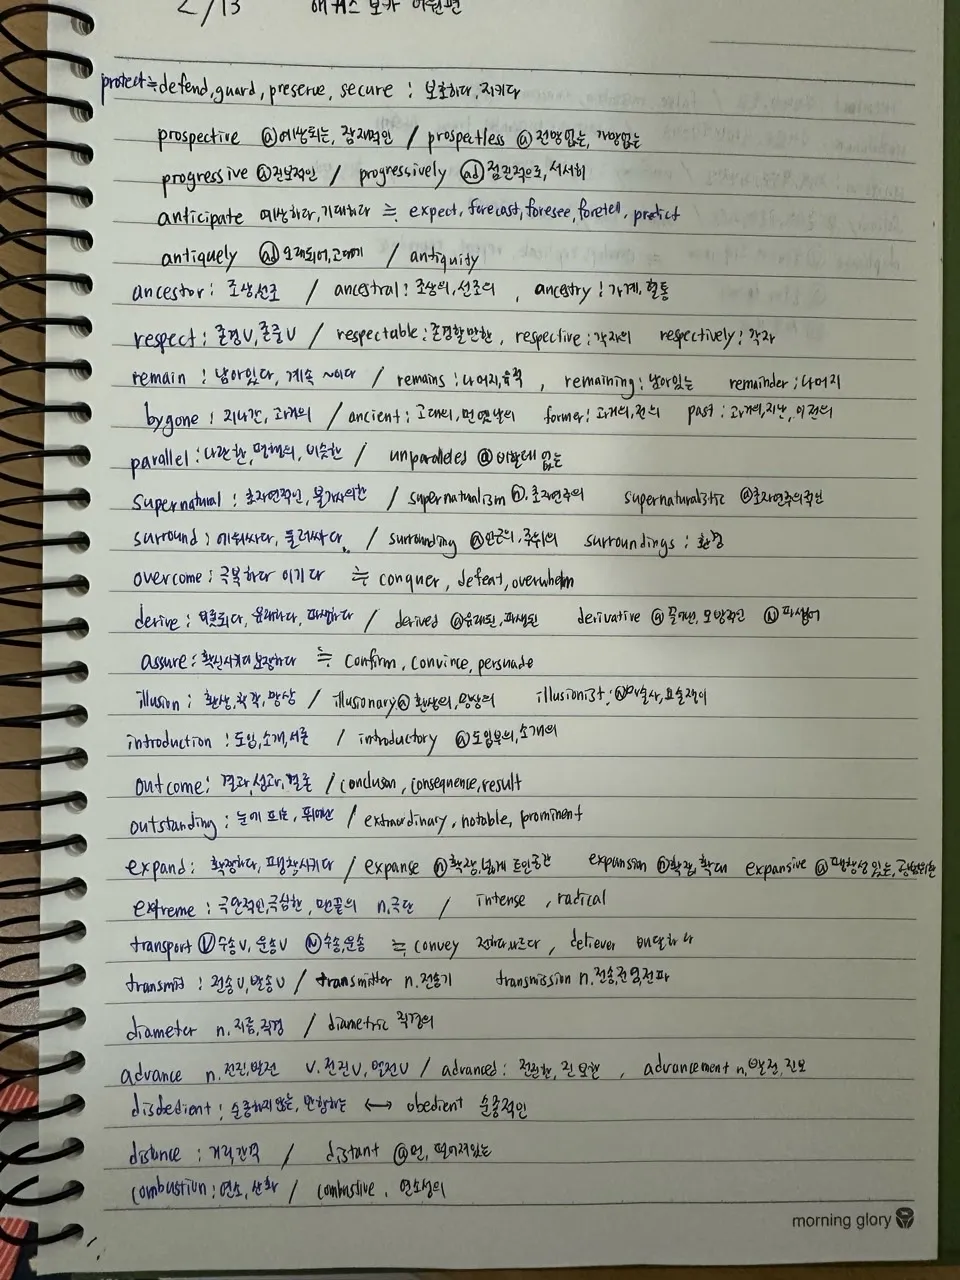 2/13 해커스 보카 어원편
protect ≒ defend, guard, preserve, secure : 보호하다, 지키다
prospective ⓐ 예상되는, 잠재적인 / prospectless ⓐ 전망없는, 가망없는
progressive ⓐ 진보적인 / progressively ⓐd 점진적으로, 서서히
anticipate 예상하다, 기대하다 ≒ expect, forecast, foresee, foretell, predict
antiquely ⓐd 오래되어, 고대에 / antiquity
ancestor : 조상, 선조 / ancestral : 조상의, 선조의 , ancestry : 가계, 혈통
respect : 존경V, 존중V / respectable : 존경할만한, respective : 각자의 respectively : 각자
remain : 남아있다, 계속 ~이다 / remains : 나머지, 유적 , remaining : 남아있는 remainder : 나머지
bygone : 지나간, 과거의 / ancient : 고대의, 먼 옛날의 former : 과거의, 전의 past : 과거의, 지난, 이전의
parallel : 나란한, 평행의, 비슷한 / unparalleled ⓐ 비할데 없는
supernatural : 초자연적인, 불가사의한 / supernaturalism ⓝ. 초자연주의 supernaturalistic ⓐ초자연주의적인
surround : 에워싸다, 둘러싸다 / surrounding ⓐ인근의, 주위의 surroundings : 환경
overcome : 극복하다 이기다 ≒ conquer, defeat, overwhelm
derive : 비롯되다, 유래하다, 파생하다 / derived ⓐ유래된, 파생된 derivative ⓐ 끌어낸, 모방적인 ⓝ 파생어
assure : 확신시키다 보장하다 ≒ confirm, convince, persuade
illusion : 환상, 착각, 망상 / illusionary ⓐ 환상의, 망상의 illusionist : ⓝ마술사, 요술쟁이
introduction : 도입, 소개, 서론 / introductory ⓐ도입부의, 소개의
outcome : 결과, 성과, 결론 / conclusion, consequence, result
outstanding : 눈에 띄는, 뛰어난 / extraordinary, notable, prominent
expand : 확장하다, 팽창시키다 / expanse ⓝ확장, 넓게 트인공간 expansion ⓝ확장, 확대 expansive ⓐ팽창성 있는, 광범위한
extreme : 극단적인, 극심한, 맨끝의 n. 극단 / intense , radical
transport ⓥ수송V, 운송V ⓝ수송, 운송 ≒ convey 전하다, 나르다, deliever 배달하다
transmit : 전송V, 발송V / transmitter n. 전송기 transmission n. 전송, 전염, 전파
diameter n. 지름, 직경 / diametric 직경의
advance n. 전진, 발전 v. 전진V, 발전V / advanced : 전진한, 진보한 , advancement n, 발전, 진보
disobedient : 순종하지 않는, 반항하는 ↔ obedient 순종적인
distance : 거리, 간격 / distant ⓐ먼, 떨어져있는
combustion : 연소, 산화 / combustive . 연소성의
morning glory